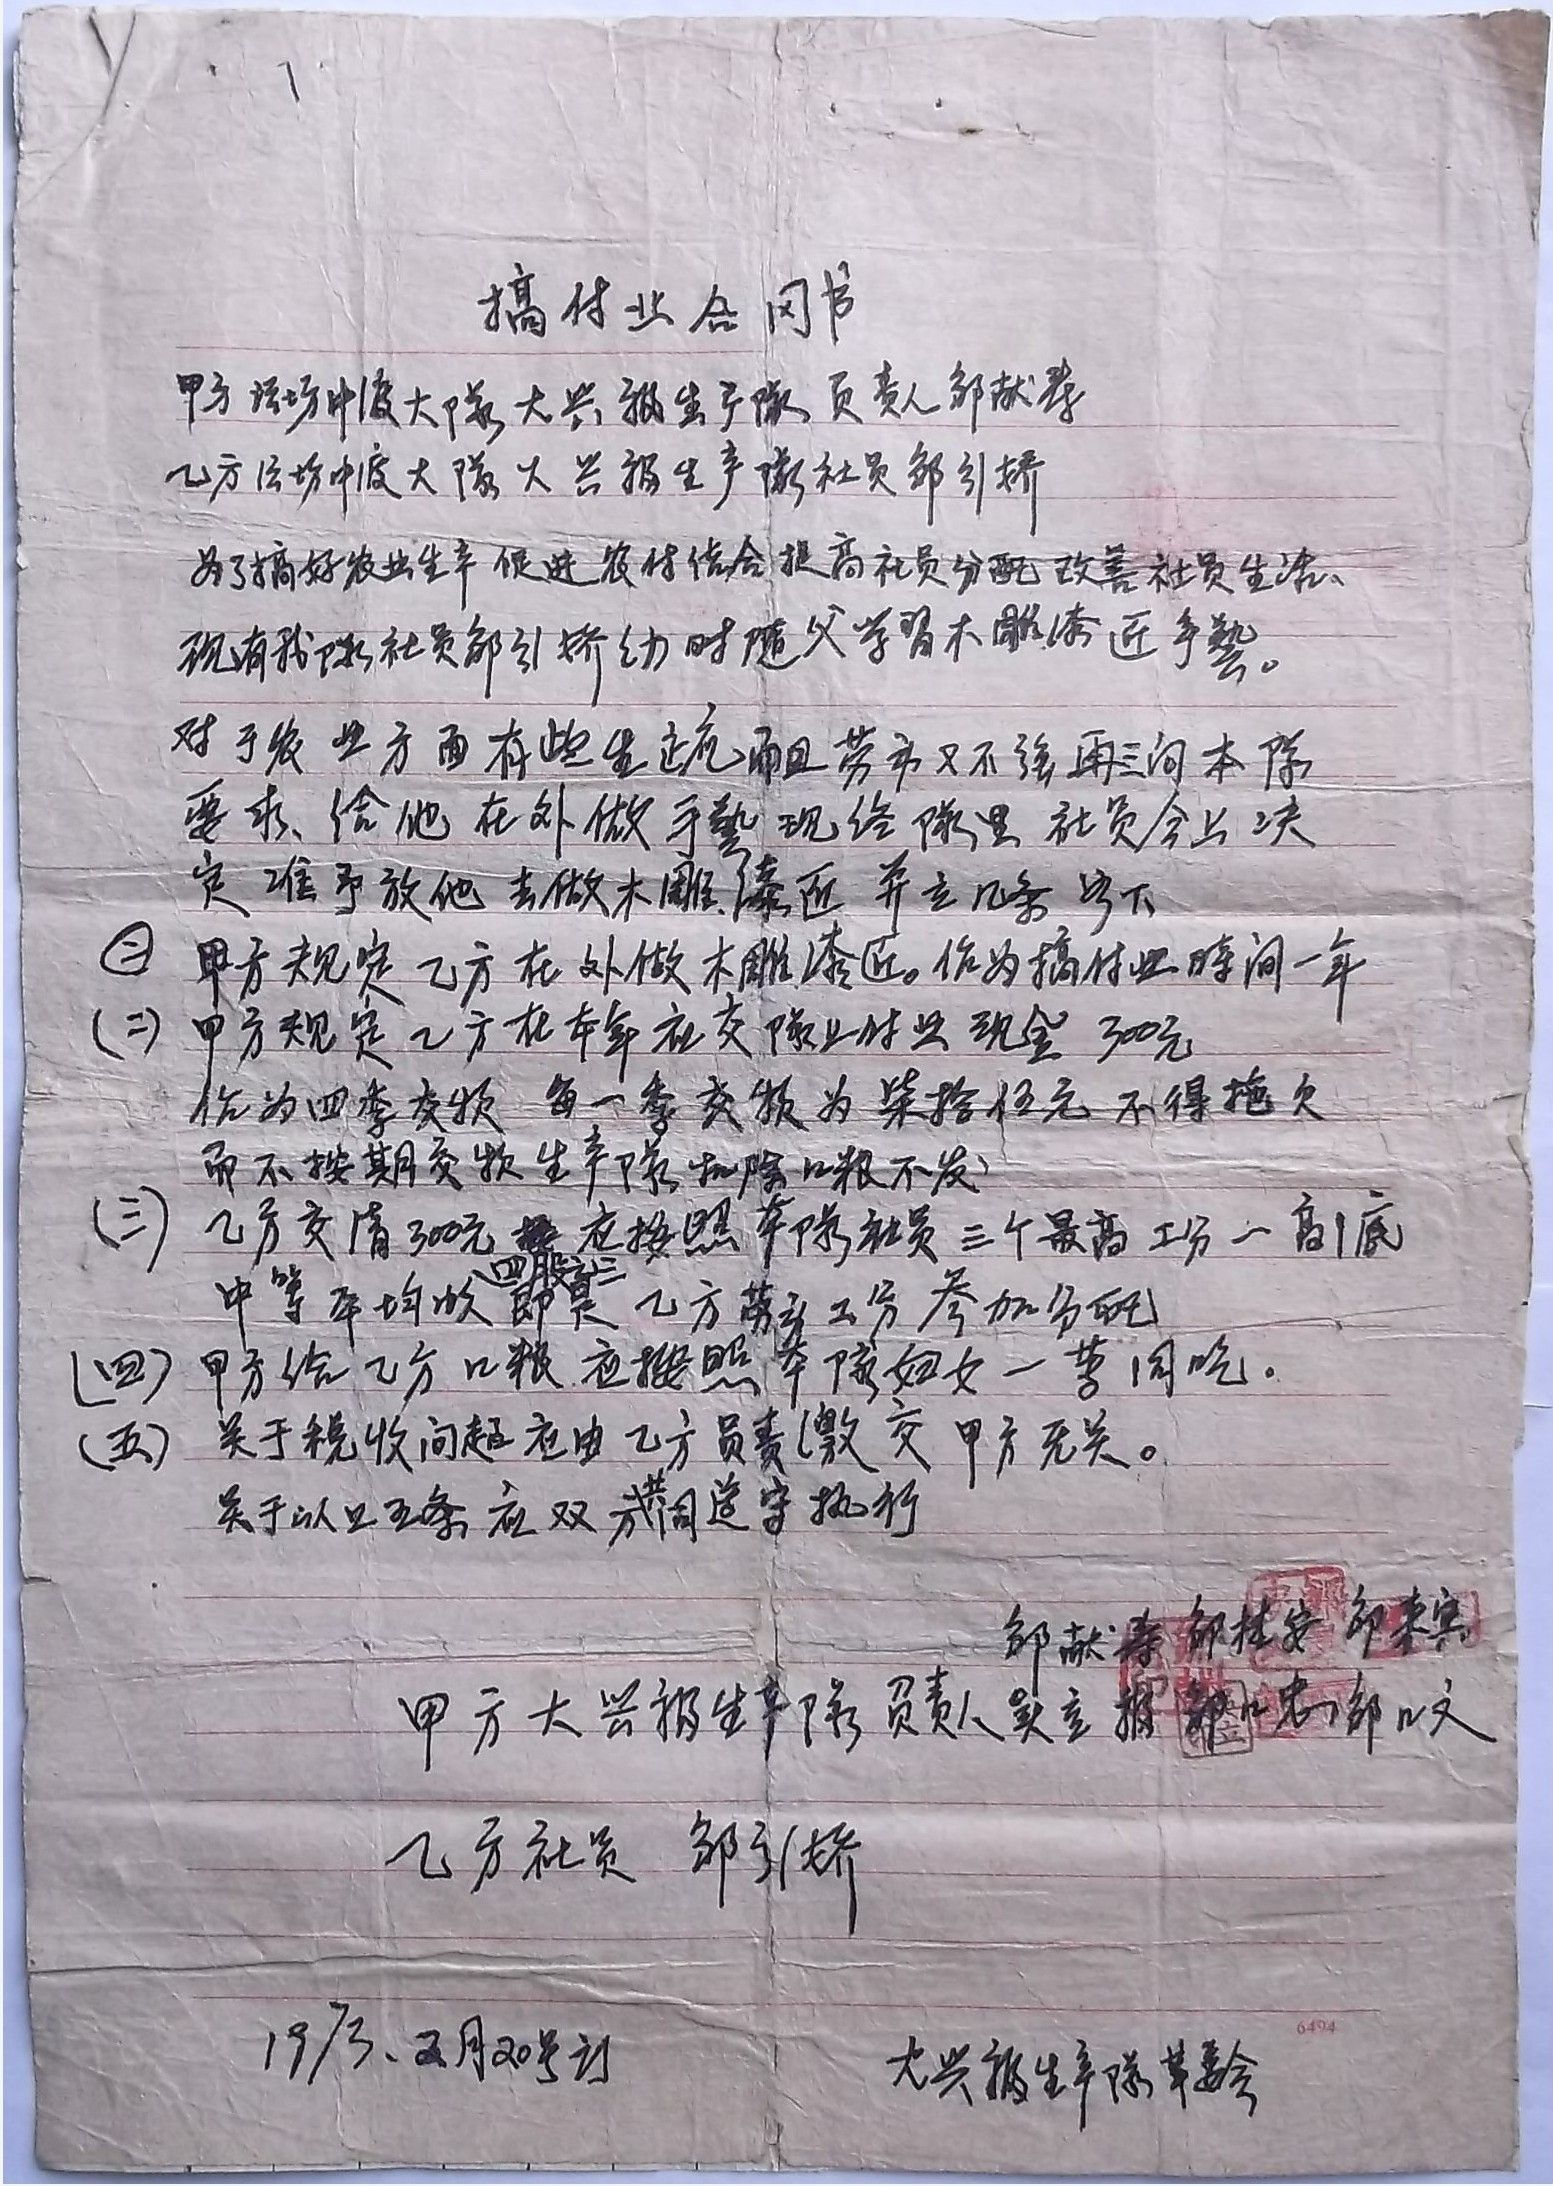 搞付业合同书
甲方法坊中渡大队大兴报生产队负责人邹献春
乙方法坊中渡大队大兴报生产队社员邹引娇
为了搞好农业生产促进农付结合提高社员分配改善社员生活、
现有我队社员邹引娇幼时随父学习木雕漆匠手艺。
对于农业方面有些生疏而且劳力又不强再三向本队
要求、给他在外做手艺现经队里社员会上决
定准予放他去做木雕漆匠并立几条如下
(一) 甲方规定乙方在外做木雕漆匠。作为搞付业时间一年
(二) 甲方规定乙方在本年在交队上付业现金300元
作为四季交款每一季交款为柒拾伍元不得拖欠
而不按期交款生产队扣除口粮不发
(三) 乙方交清300元应按照本队社员三个最高工分一高1底
四股之三
中等平均收即是乙方劳力工分参加分配
(四) 甲方给乙方口粮应按照本队妇女一等同吃。
(五) 关于税收问题应由乙方负责缴交甲方无关。
关于以上五条应双方共同遵守执行
邹献春 邹桂安 邹来宾
甲方大兴报生产队负责人吴立报 邹口忠 邹口文
乙方社员 邹引娇
1973、2月20号订
大兴报生产队革委会
6494